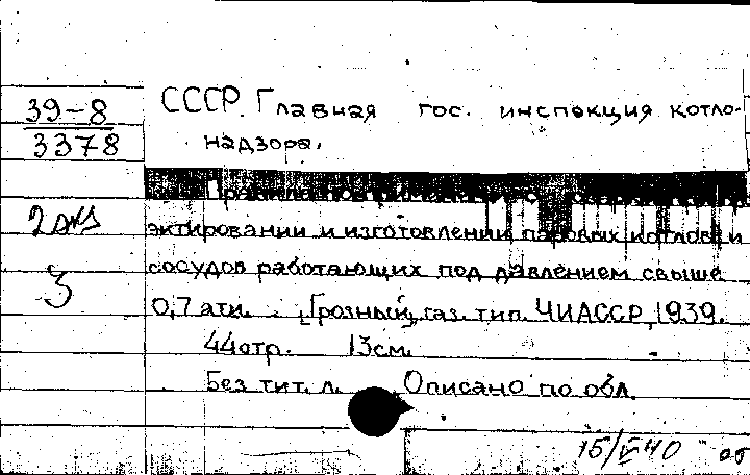 39-8
3378
2 экз
3
СССР. Главная гос. инспекция котло-
надзора.
Правила по
эктировании и изготовлении паровых котлов и
сосудов работающих под давлением свыше
0,7 ати. [Грозный], газ. тип. ЧИАССР, 1939.
44 стр. 13 см.
Без тит. л. Описано по обл.
15/V 40